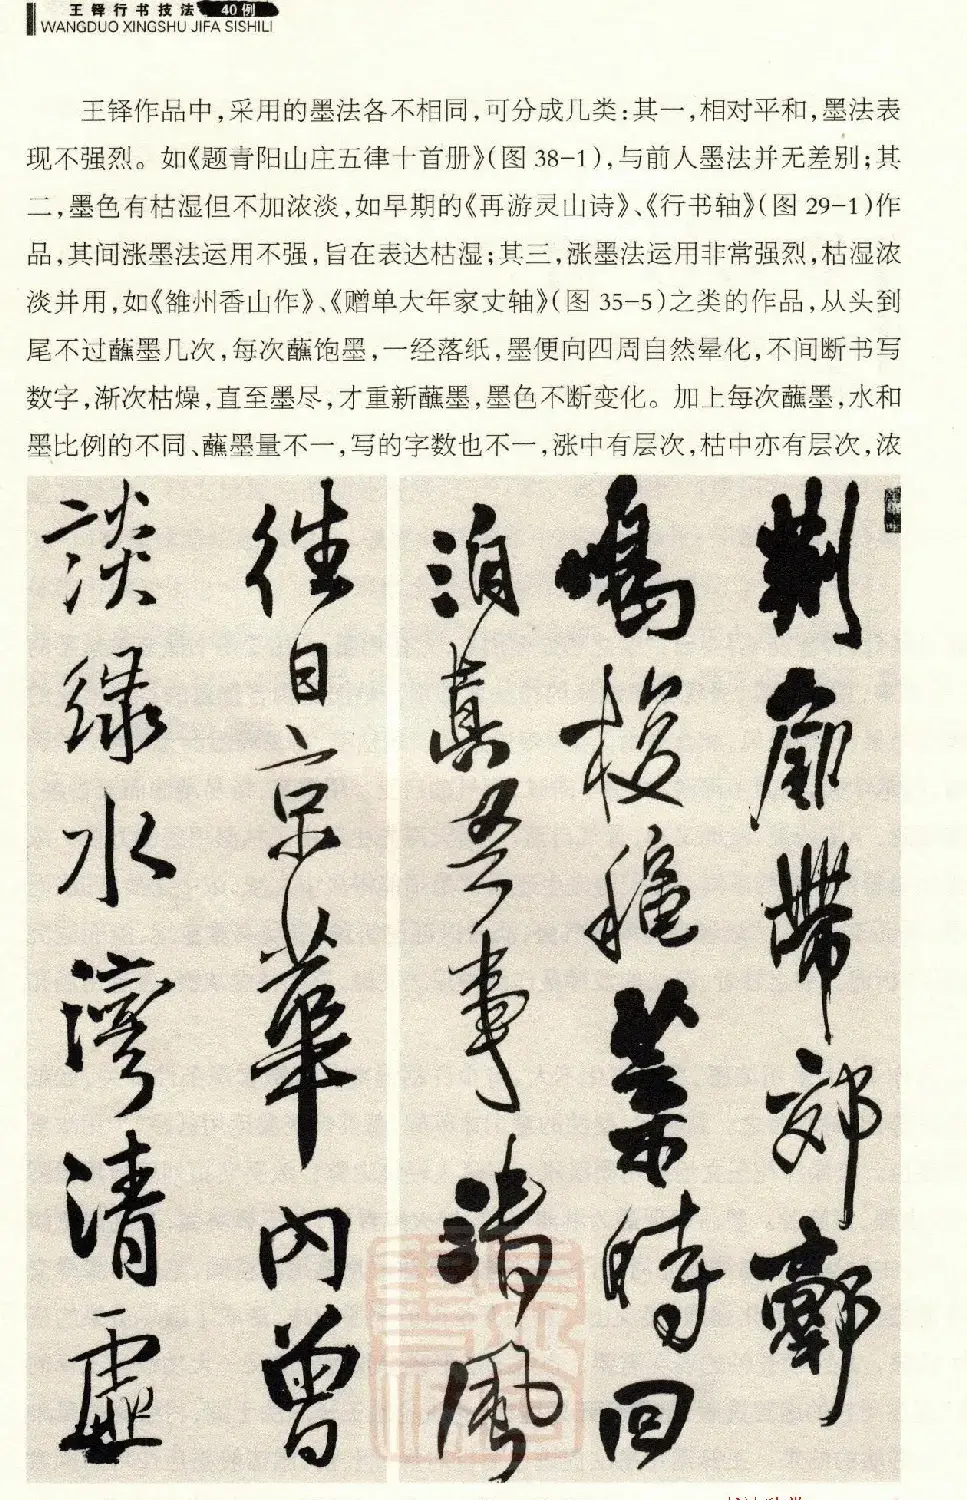 王铎行书技法 40例
WANGDUO XINGSHU JIFA SISHILI
王铎作品中，采用的墨法各不相同，可分成几类：其一，相对平和，墨法表
现不强烈。如《题青阳山庄五律十首册》（图 38-1），与前人墨法并无差别；其
二，墨色有枯湿但不加浓淡，如早期的《再游灵山诗》、《行书轴》（图 29-1）作
品，其间涨墨法运用不强，旨在表达枯湿；其三，涨墨法运用非常强烈，枯湿浓
淡并用，如《雒州香山作》、《赠单大年家丈轴》（图 35-5）之类的作品，从头到
尾不过蘸墨几次，每次蘸饱墨，一经落纸，墨便向四周自然晕化，不间断书写
数字，渐次枯燥，直至墨尽，才重新蘸墨，墨色不断变化。加上每次蘸墨，水和
墨比例的不同、蘸墨量不一，写的字数也不一，涨中有层次，枯中亦有层次，浓
荆帶郊
鳴種菜時回
泊真吾事清風
往日京華內曾
談綠水灣清虛